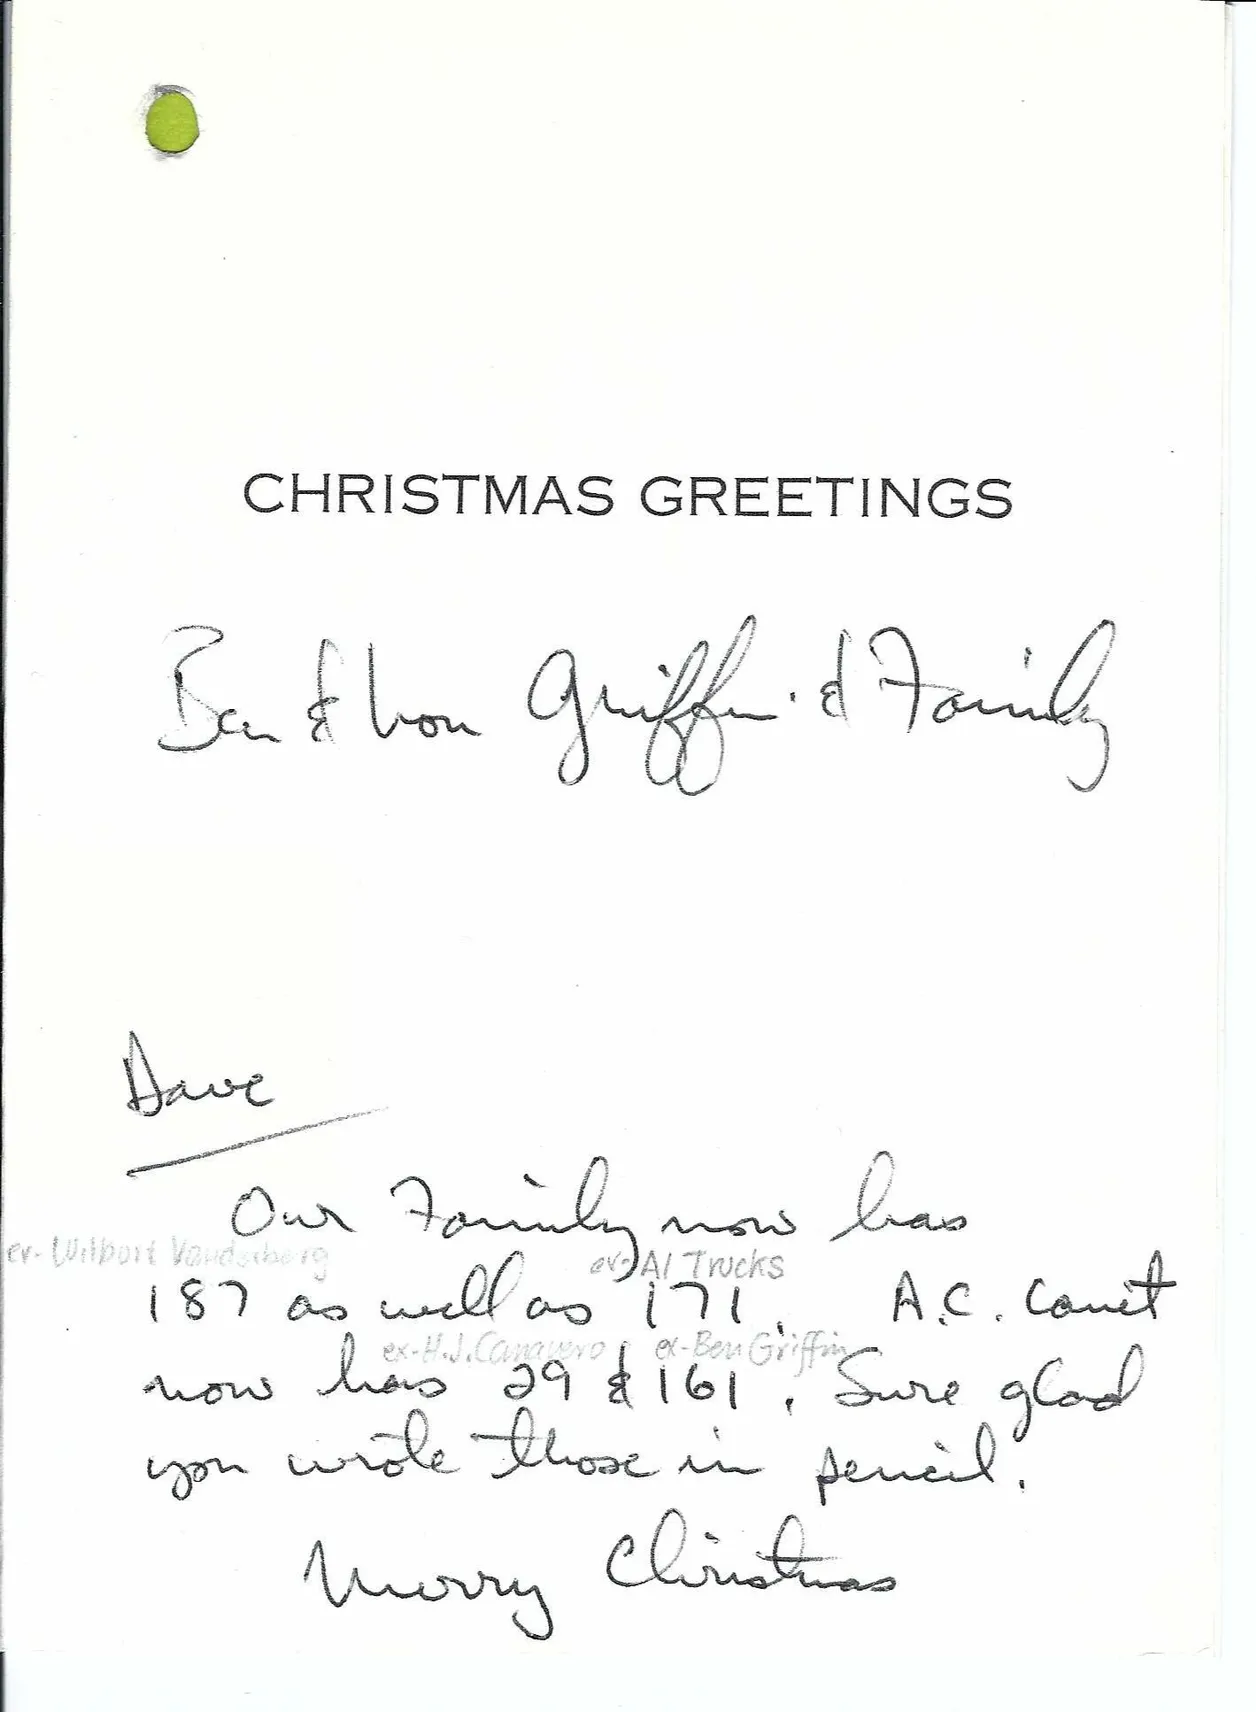 CHRISTMAS GREETINGS
Ben & Von Griffin & Family
Dave
Our Family now has
ex-Wilburt Vanderberg ex-Al Trucks
187 as well as 171. A.C.
ex-H.J.Canavero ex-Ben Griffin
now has 29 & 161. Sure glad
you wrote those in pencil.
Merry Christmas